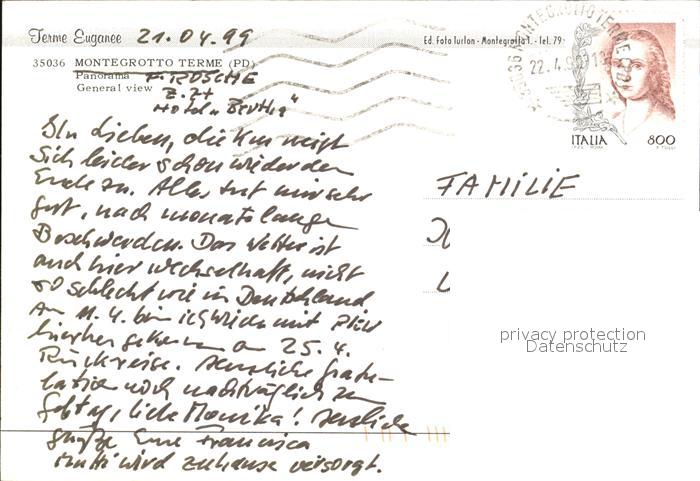 Terme Euganee 21.04.99
Ed. Foto Iurlon - Montegrotto T. - Tel. 79
35036 MONTEGROTTO TERME (PD)
Panorama F. ROSCHE
General view z. Zt
Hotel "Bertha"
22.4.99
ITALIA 800
Ihr Lieben, die Kur neigt
sich leider schon wieder dem
Ende zu. Alles tut mir sehr
gut, nach monatelangen
Beschwerden. Das Wetter ist
auch hier wechselhaft, nicht
so schlecht wie in Deutschland
Am 11. 4. bin ich wieder mit
hierher gekommen am 25. 4.
Rückreise. Herzliche Gratu-
lation noch nachträglich zum
Gebtag, liebe Monika! Herzliche
Grüße Eure Francisca
Mutti wird zuhause versorgt.
FAMILIE
privacy protection
Datenschutz